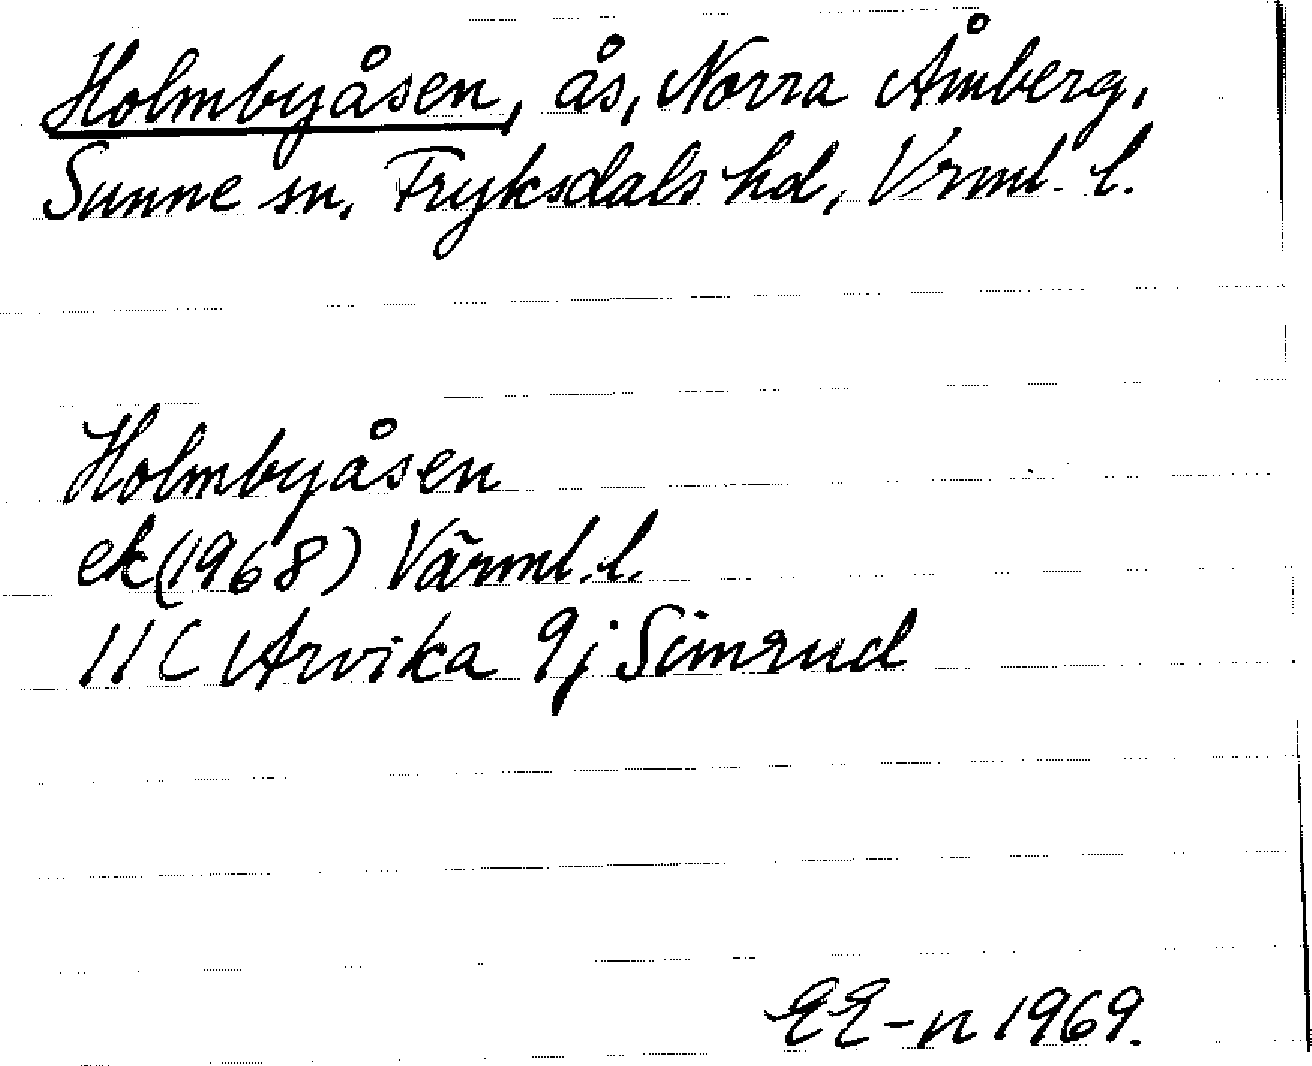 Holmbyåsen, ås, Norra Åmberg,
Sunne sn, Fryksdals hd, Vrml. l.
Holmbyåsen
ek (1968) Värml. l.
11 C Arvika 9j Simrud
EE-n 1969.